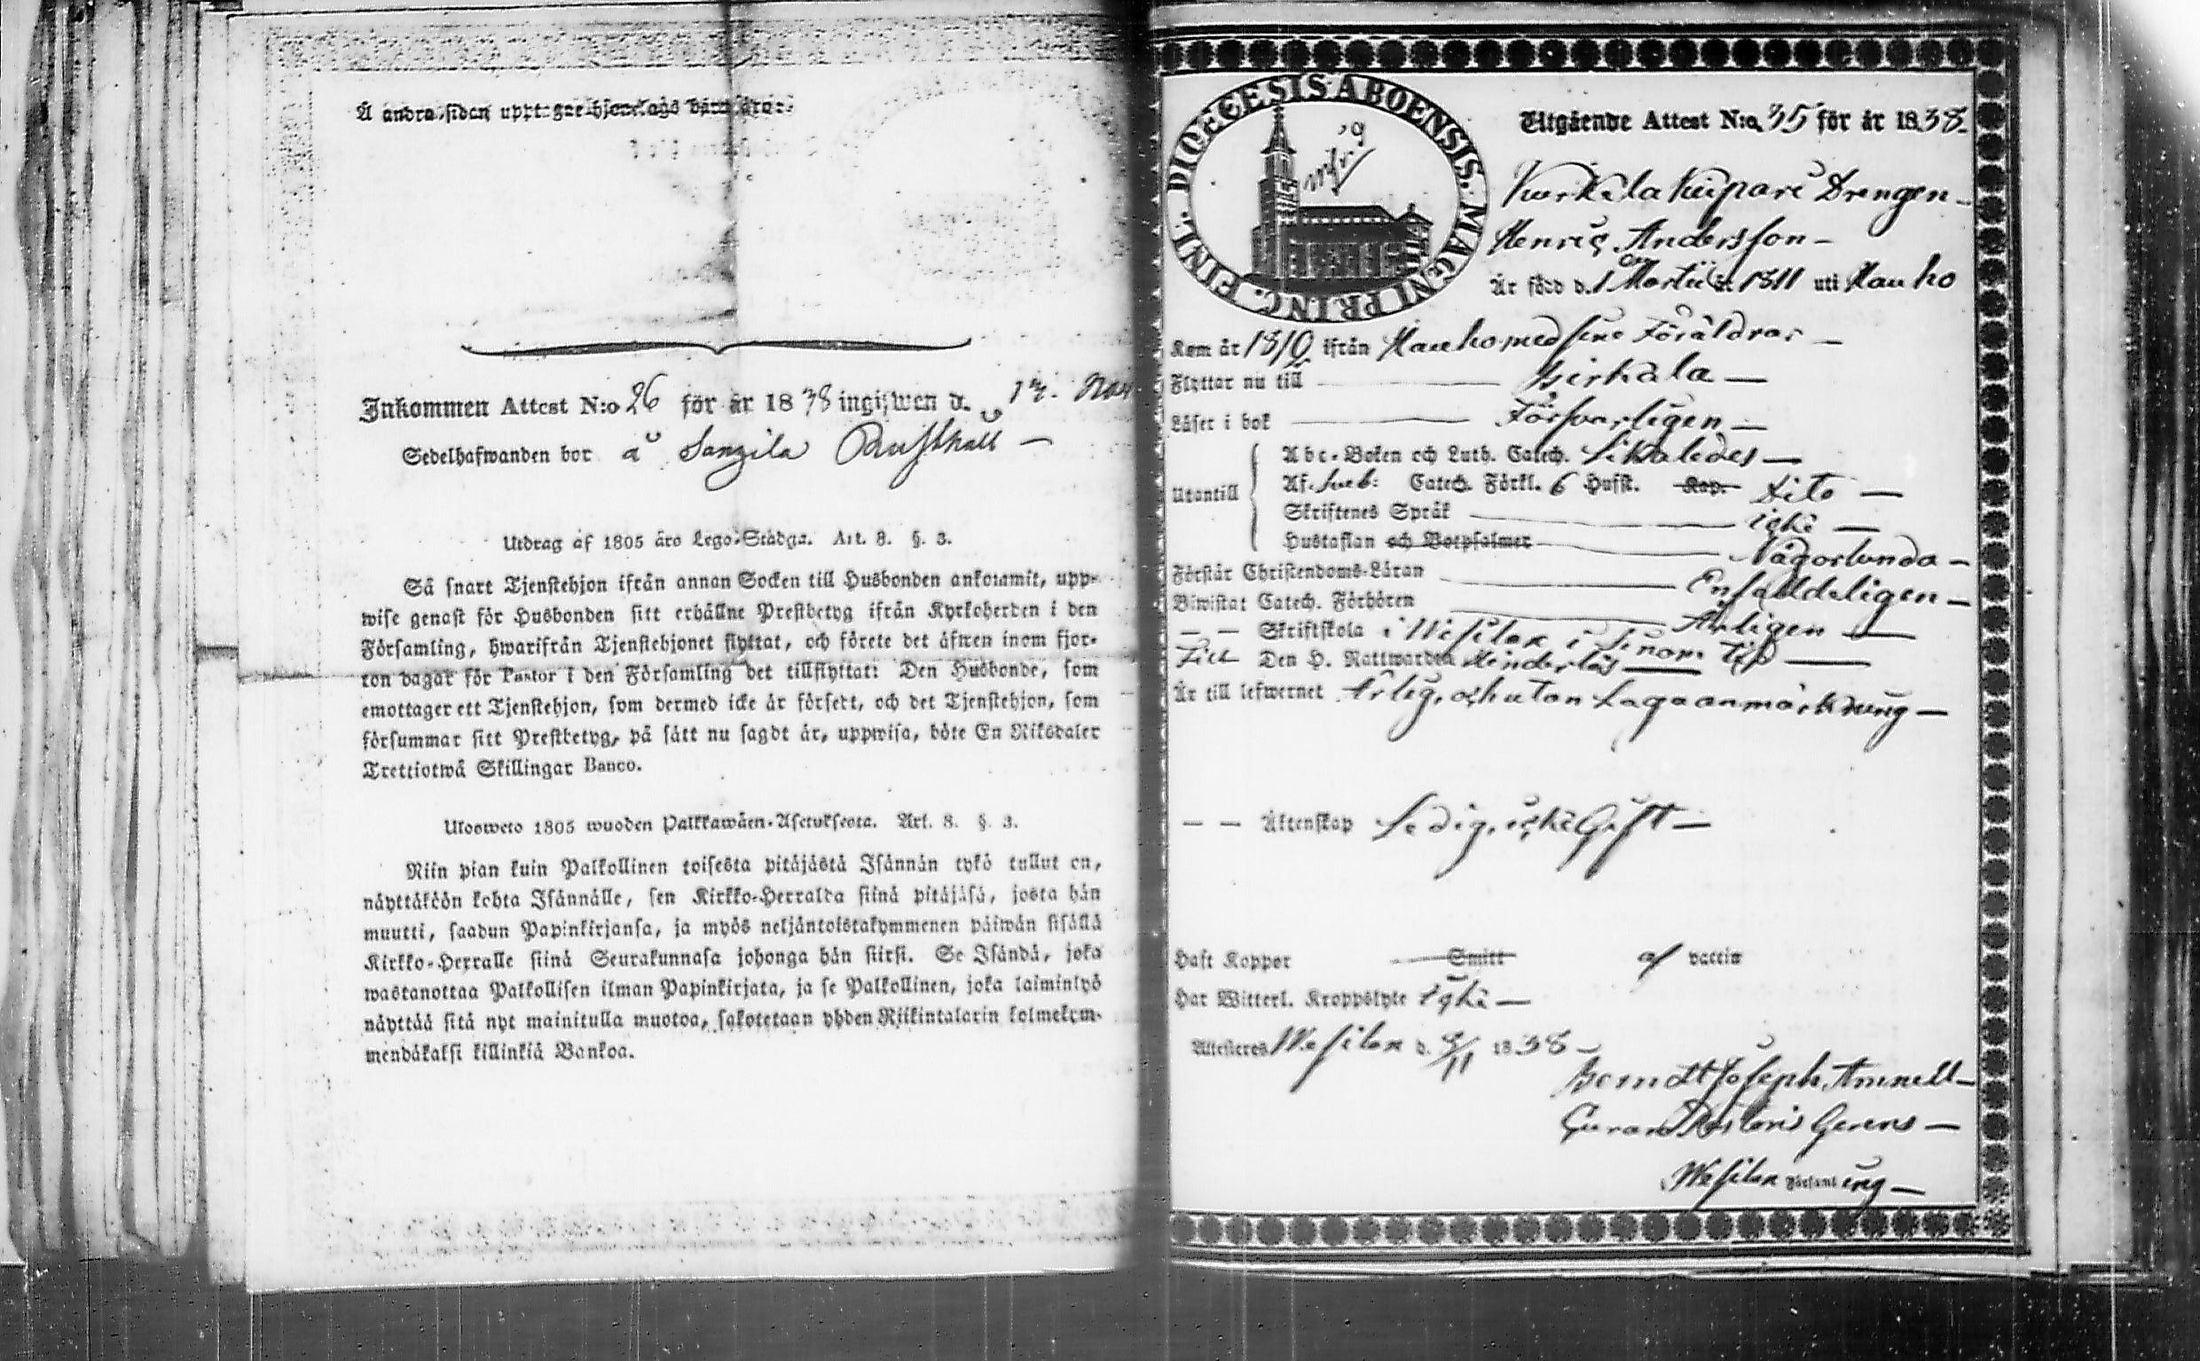 Å andra sidan upptagne hjonelags barn äro:
Inkommen Attest N:o 26 för år 1838 ingifwen d. 17. Nov
Sedelhafwanden bor å Sangila Rusthåll —
Utdrag af 1805 års Lego-Stadga. Art. 8. §. 3.
Så snart Tjenstehjon ifrån annan Socken till Husbonden ankommit, upp-
wise genast för Husbonden sitt erhållne Prestbetyg ifrån Kyrkoherden i den
Församling, hwarifrån Tjenstehjonet flyttat, och förete det äfwen inom fjor-
ton dagar för Pastor i den Församling det tillflyttat: Den Husbonde, som
emottager ett Tjenstehjon, som dermed icke är försedt, och det Tjenstehjon, som
försummar sitt Prestbetyg, på sätt nu sagdt är, uppwisa, böte En Riksdaler
Trettiotwå Skillingar Banco.
Ulosweto 1805 wuoden Palkkawäen-Asetuksesta. Art. 8. §. 3.
Niin pian kuin Palkollinen toisesta pitäjästä Isännän tykö tullut on,
näyttäköön kohta Isännälle, sen Kirkko-Herralda siinä pitäjäsä, josta hän
muutti, saadun Papinkirjansa, ja myös neljäntoistakymmenen päiwän sisällä
Kirkko-Herralle siinä Seurakunnasa johonga hän siirsi. Se Isändä, joka
wastanottaa Palkollisen ilman Papinkirjata, ja se Palkollinen, joka laiminlyö
näyttää sitä nyt mainitulla muotoa, sakotetaan yhden Riikintalarin kolmekym-
mendäkaksi killinkiä Bankoa.
FINL. DIOECESIS ABOENSIS. MAGNI PRINC.
Utgående Attest N:o 35 för år 1838.
Kurkela Drengen
Henric Andersson —
Är född d. 1 Martii år 1811 uti Hauho
Kom år 1810 ifrån Hauho med sine Föräldrar —
Flyttar nu till Birkala —
Läser i bok Försvarligen —
Utantill
Abc-Boken och Luth. Catech. Likaledes —
Af Sveb: Catech. Förkl. 6 Hufst. Kap. Dito —
Skriftenes Språk icke —
Hustaflan och Botpsalmer Någorlunda —
Förstår Christendoms-Läran Enfaldeligen —
Biwistat Catech. Förhören Årligen —
— — Skriftskola i Wesilax i sinom tid —
Till Den H. Nattwarden Hinderlös
Är till lefwernet Ärlig, och utan Laga anmärkning —
— — Äktenskap Ledig, icke Gift —
Haft Koppor Smitt af vaccin
Har Witterl. Kroppslyte icke —
Attesteras Wesilax d. 9/11 1838 —
Berndt Joseph Amnell —
Curam Pastoris Gerens —
Wesilax Församling —